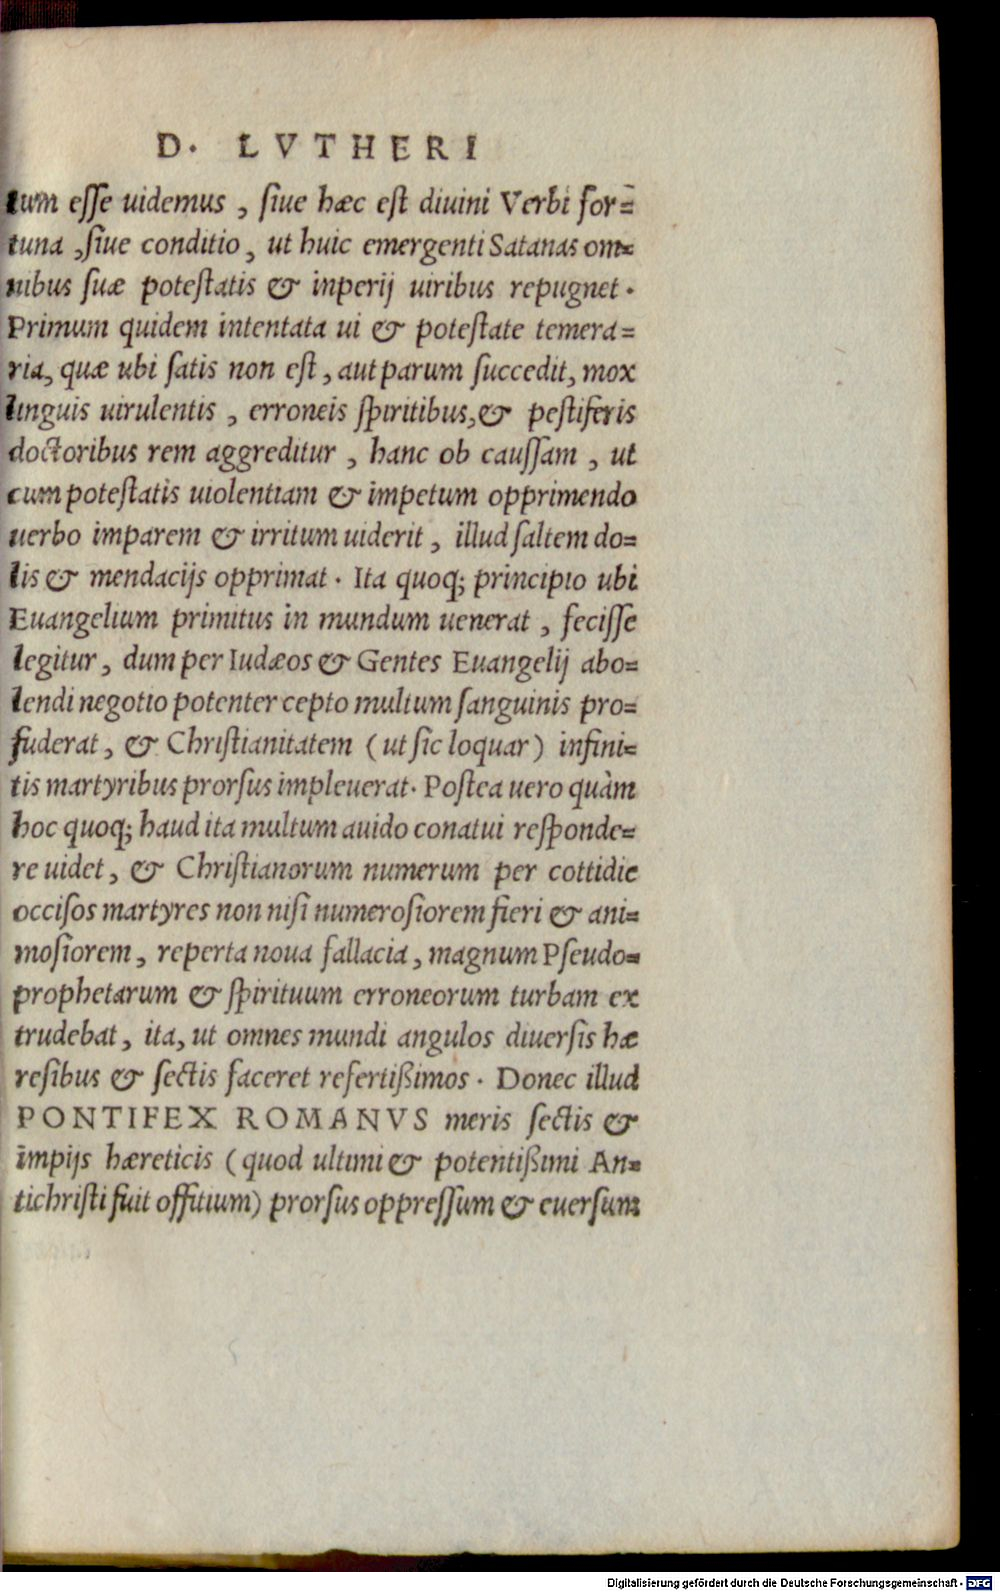 D. LVTHERI
tum esse uidemus, siue hæc est diuini Verbi for=
tuna, siue conditio, ut huic emergenti Satanas om=
nibus suæ potestatis & inperij uiribus repugnet.
Primum quidem intentata ui & potestate temera=
ria, quæ ubi satis non est, aut parum succedit, mox
linguis uirulentis, erroneis spiritibus, & pestiferis
doctoribus rem aggreditur, hanc ob caussam, ut
cum potestatis uiolentiam & impetum opprimendo
uerbo imparem & irritum uiderit, illud saltem do=
lis & mendacijs opprimat. Ita quoq; principio ubi
Euangelium primitus in mundum uenerat, fecisse
legitur, dum per Iudæos & Gentes Euangelij abo=
lendi negotio potenter cepto multum sanguinis pro=
fuderat, & Christianitatem (ut sic loquar) infini=
tis martyribus prorsus impleuerat. Postea uero quàm
hoc quoq; haud ita multum auido conatui responde=
re uidet, & Christianorum numerum per cottidie
occisos martyres non nisi numerosiorem fieri & ani=
mosiorem, reperta noua fallacia, magnum Pseudo=
prophetarum & spirituum erroneorum turbam ex
trudebat, ita, ut omnes mundi angulos diuersis hæ
resibus & sectis faceret refertißimos. Donec illud
PONTIFEX ROMANVS meris sectis &
impijs hæreticis (quod ultimi & potentißimi An=
tichristi fuit offitium) prorsus oppressum & euersum
Digitalisierung gefördert durch die Deutsche Forschungsgemeinschaft - DFG